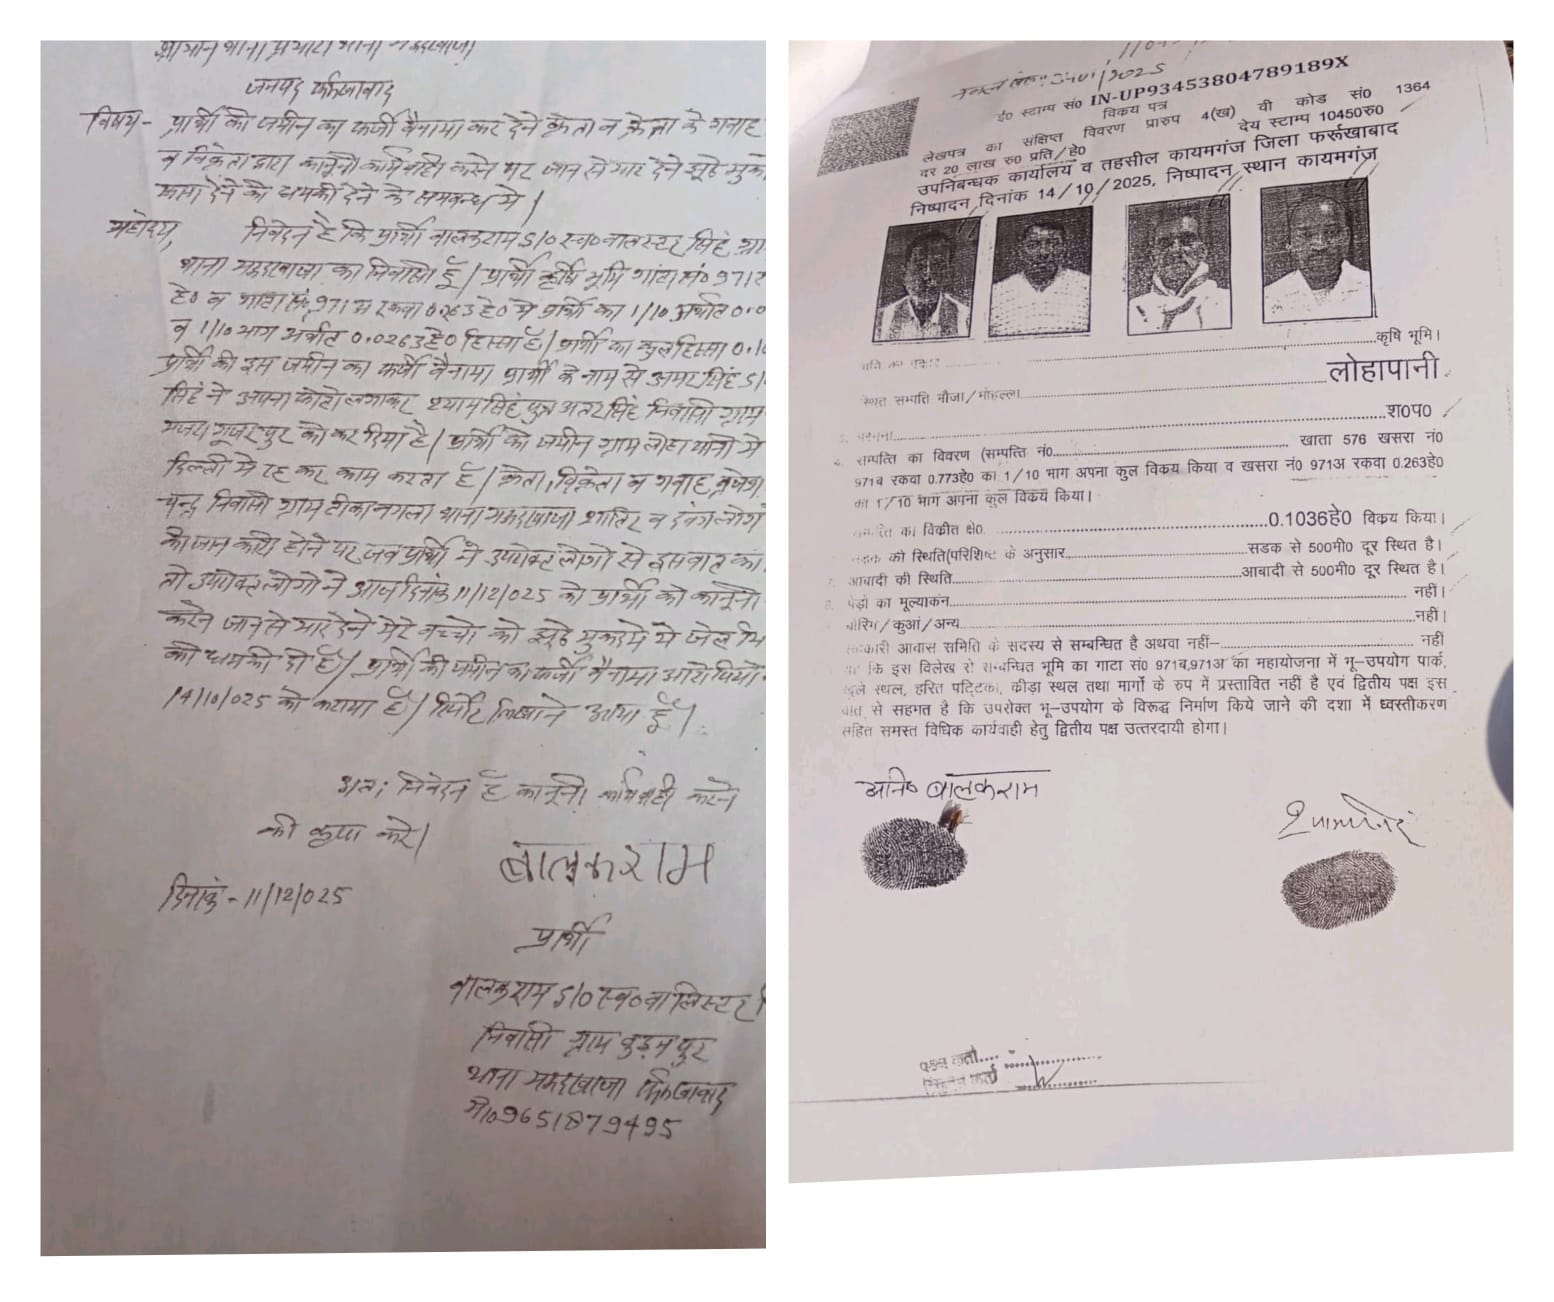 जनपद फर्रुखाबाद
विषय - प्रार्थी की जमीन का फर्जी बैनामा कर देने क्रेता व क्रेता के गवाह
व विक्रेता द्वारा कानूनी कार्यवाही करने पर जान से मार देने झूठे
फसा देने की धमकी देने के सम्बन्ध में।
महोदय, निवेदन है कि प्रार्थी बालकराम S/O स्व० बालस्टर सिंह
थाना मऊदरवाजा का निवासी हूँ। प्रार्थी कृषि भूमि गाटा सं० 971
हे० व गाटा सं० 971 रकवा 0.263 हे० में प्रार्थी का 1/10 अर्थात 0.0
व 1/10 भाग अर्थात 0.0263 हे० हिस्सा है। प्रार्थी का कुल हिस्सा
प्रार्थी की इस जमीन का फर्जी बैनामा प्रार्थी के नाम से अमर सिंह S/
सिंह ने अपना फोटो लगाकर श्याम सिंह पुत्र अतर सिंह निवासी ग्राम
गूजरपुर को कर दिया है। प्रार्थी की जमीन ग्राम लोहापानी में
दिल्ली में रह कर काम करता है। क्रेता, विक्रेता व गवाह
चन्द्र निवासी ग्राम टीकानगला थाना मऊदरवाजा शातिर व दबंग लोग
की जानकारी होने पर जब प्रार्थी ने उपरोक्त लोगों से इस बात का
तो उपरोक्त लोगो ने आज दिनांक 11/12/025 को प्रार्थी को कानूनी
करने जान से मार देने मेरे बच्चो को झूठे मुकदमे में जेल
की धमकी दी है। प्रार्थी की जमीन का फर्जी बैनामा आरोपियो
14/10/025 को कराया है। रिपोर्ट लिखाने आया हूँ।
अतः निवेदन है कानूनी कार्यवाही करने
की कृपा करे।
दिनांक - 11/12/025
बालकराम
प्रार्थी
बालकराम S/O स्व० बालिस्टर
निवासी ग्राम कुड़नपुर
थाना मऊदरवाजा फर्रुखाबाद
मो० 9651879495
2025
ई० स्टाम्प सं० IN-UP93453804789189X
विक्रय पत्र
लेखपत्र का संक्षिप्त विवरण प्रारुप 4(ख) वी कोड सं० 1364
दर 20 लाख रु० प्रति/हे० देय स्टाम्प 10450रु०
उपनिबन्धक कार्यालय व तहसील कायमगंज जिला फर्रूखाबाद
निष्पादन दिनांक 14/10/2025, निष्पादन स्थान कायमगंज
कृषि भूमि।
स्थित सम्पति मौजा/मोहल्ला लोहापानी
परगना श०प०
सम्पत्ति का विवरण (सम्पत्ति नं० खाता 576 खसरा नं०
971ब रकवा 0.773हे० का 1/10 भाग अपना कुल विकय किया व खसरा नं० 971अ रकवा 0.263हे०
का 1/10 भाग अपना कुल विकय किया।
का विकीत क्षे० 0.1036हे० विकय किया।
सडक की स्थिति(परिशिष्ट के अनुसार सडक से 500मी० दूर स्थित है।
आबादी की स्थिति आबादी से 500मी० दूर स्थित है।
पेड़ो का मूल्याकंन नहीं।
बोरिंग/कुआं/अन्य नहीं।
सहकारी आवास समिति के सदस्य से सम्बन्धित है अथवा नहीं- नहीं
कि इस विलेख से सम्बन्धित भूमि का गाटा सं० 971ब,971अ का महायोजना में भू-उपयोग पार्क,
खुले स्थल, हरित पट्टिका, कीड़ा स्थल तथा मार्गो के रुप में प्रस्तावित नहीं है एवं द्वितीय पक्ष इस
बात से सहमत है कि उपरोक्त भू-उपयोग के विरूद्ध निर्माण किये जाने की दशा में ध्वस्तीकरण
सहित समस्त विधिक कार्यवाही हेतु द्वितीय पक्ष उत्तरदायी होगा।
बालकराम